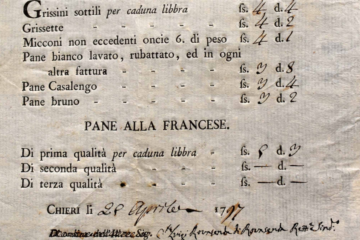 Grissini sottili per caduna libbra - ſs. 4 d. 4
Grissette - - - - ſs. 4 d. 2
Micconi non eccedenti oncie 6. di peso ſs. 4 d. 1
Pane bianco lavato, rubattato, ed in ogni
altra fattura - - - - ſs. 3 d. 8
Pane Casalengo - - - - ſs. 3 d. 4
Pane bruno - - - - ſs. 3 d. 2
PANE ALLA FRANCESE.
Di prima qualità per caduna libbra - ſs. 5 d. 3
Di seconda qualità - - - ſs. — d. —
Di terza qualità - - - ſs. — d. —
CHIERI li Aprile 1797